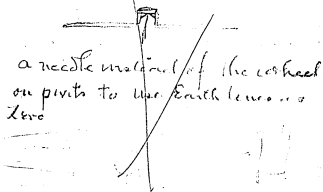 a needle instead of the wheel
on pivots to use Earth line as
Zero